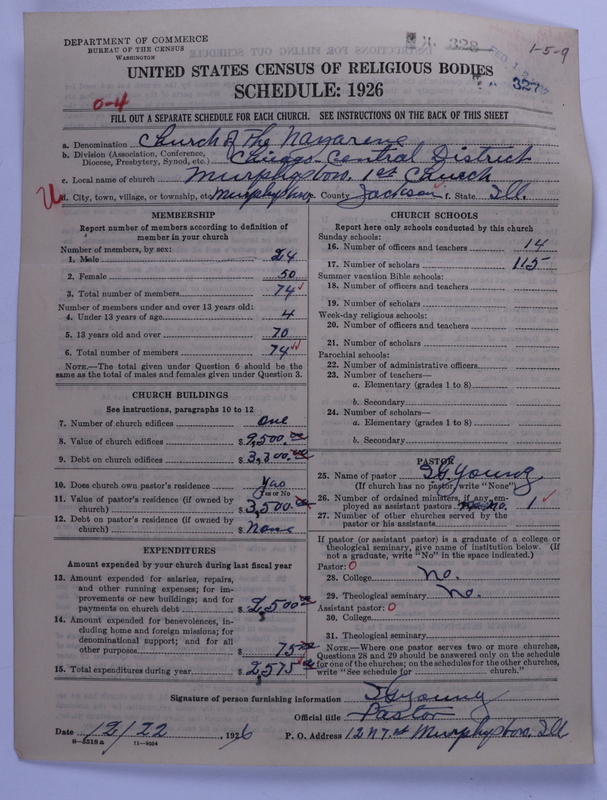 DEPARTMENT OF COMMERCE
BUREAU OF THE CENSUS
WASHINGTON
328
1-5-9
327
UNITED STATES CENSUS OF RELIGIOUS BODIES
SCHEDULE: 1926
0-4
FILL OUT A SEPARATE SCHEDULE FOR EACH CHURCH. SEE INSTRUCTIONS ON THE BACK OF THIS SHEET
a. Denomination Church of The Nazarene
b. Division (Association, Conference, Diocese, Presbytery, Synod, etc.) Chicago Central District
c. Local name of church Murphysboro. 1st Church
d. City, town, village, or township, etc. Murphysboro. e. County Jackson f. State Ill.
MEMBERSHIP
Report number of members according to definition of
member in your church
Number of members, by sex:
1. Male 24
2. Female 50
3. Total number of members 74
Number of members under and over 13 years old:
4. Under 13 years of age 4
5. 13 years old and over 70
6. Total number of members 74
NOTE.—The total given under Question 6 should be
same as the total of males and females given under Question 3.
CHURCH BUILDINGS
See instructions, paragraphs 10 to 12
7. Number of church edifices one
8. Value of church edifices $ 9,500.00
9. Debt on church edifices $ 3,300.00
10. Does church own pastor's residence Yes
Yes or No
11. Value of pastor's residence (if owned by
church) $ 3,500.00
12. Debt on pastor's residence (if owned by
church) $ None
EXPENDITURES
Amount expended by your church during last fiscal year
13. Amount expended for salaries, repairs,
and other running expenses; for im-
provements or new buildings; and for
payments on church debt $ 2,500.00
14. Amount expended for benevolences, in-
cluding home and foreign missions; for
denominational support; and for all
other purposes $ 75.00
15. Total expenditures during year $ 2,575.00
CHURCH SCHOOLS
Report here only schools conducted by this church
Sunday schools:
16. Number of officers and teachers 14
17. Number of scholars 115
Summer vacation Bible schools:
18. Number of officers and teachers
19. Number of scholars
Week-day religious schools:
20. Number of officers and teachers
21. Number of scholars
Parochial schools:
22. Number of administrative officers
23. Number of teachers—
a. Elementary (grades 1 to 8)
b. Secondary
24. Number of scholars—
a. Elementary (grades 1 to 8)
b. Secondary
PASTOR
25. Name of pastor Young
(If church has no pastor, write "None")
26. Number of ordained ministers, if any, em-
ployed as assistant pastors no. 1
27. Number of other churches served by the
pastor or his assistants
If pastor (or assistant pastor) is a graduate of a college or
theological seminary, give name of institution below. (If
not a graduate, write "No" in the space indicated.)
Pastor: 0
28. College no.
29. Theological seminary no.
Assistant pastor: 0
30. College
31. Theological seminary
NOTE.—Where one pastor serves two or more churches,
Questions 28 and 29 should be answered only on the schedule
for one of the churches; on the schedules for the other churches,
write "See schedule for church."
Signature of person furnishing information Young
Official title Pastor
Date 12/22, 1926 P. O. Address Murphysboro. Ill
8-5518a 11-9004